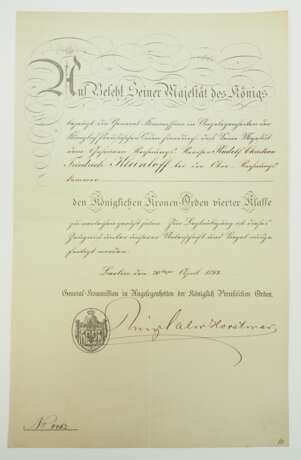 Auf Befehl Seiner Majestät des Königs
bezeugt die General-Kommission in Angelegenheiten der
Königlich Preußischen Orden hierdurch, daß Seine Majestät
dem Geheimen Rudolf Christian
Friedrich bei der Ober-Rechnungs-
kammer
den Königlichen Kronen-Orden vierter Klasse
zu verleihen geruht haben. Zur Beglaubigung ist dieses
Zeugniß unter unserer Unterschrift und Siegel ausge-
fertigt worden.
Berlin, den April
General-Kommission in Angelegenheiten der Königlich Preußischen Orden.
Prinz Salm Horstmar
No